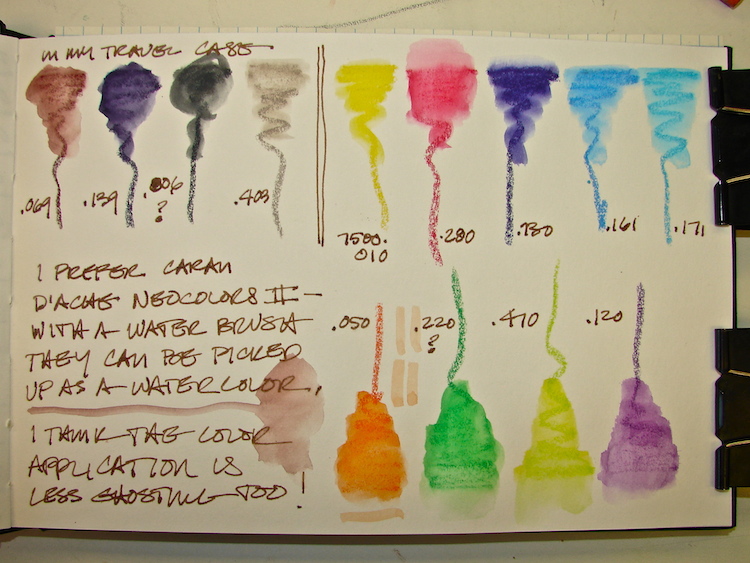 IN MY TRAVEL CASE
.069
.139
.006
?
.403
7500.
010
.280
.130
.161
.171
I PREFER CARAN
D'ACHE NEOCOLORS II —
WITH A WATER BRUSH
THEY CAN BE PICKED
UP AS A WATERCOLOR.
I THINK THE COLOR
APPLICATION IS
LESS GHOSTING TOO!
.050
.220
?
.470
.120